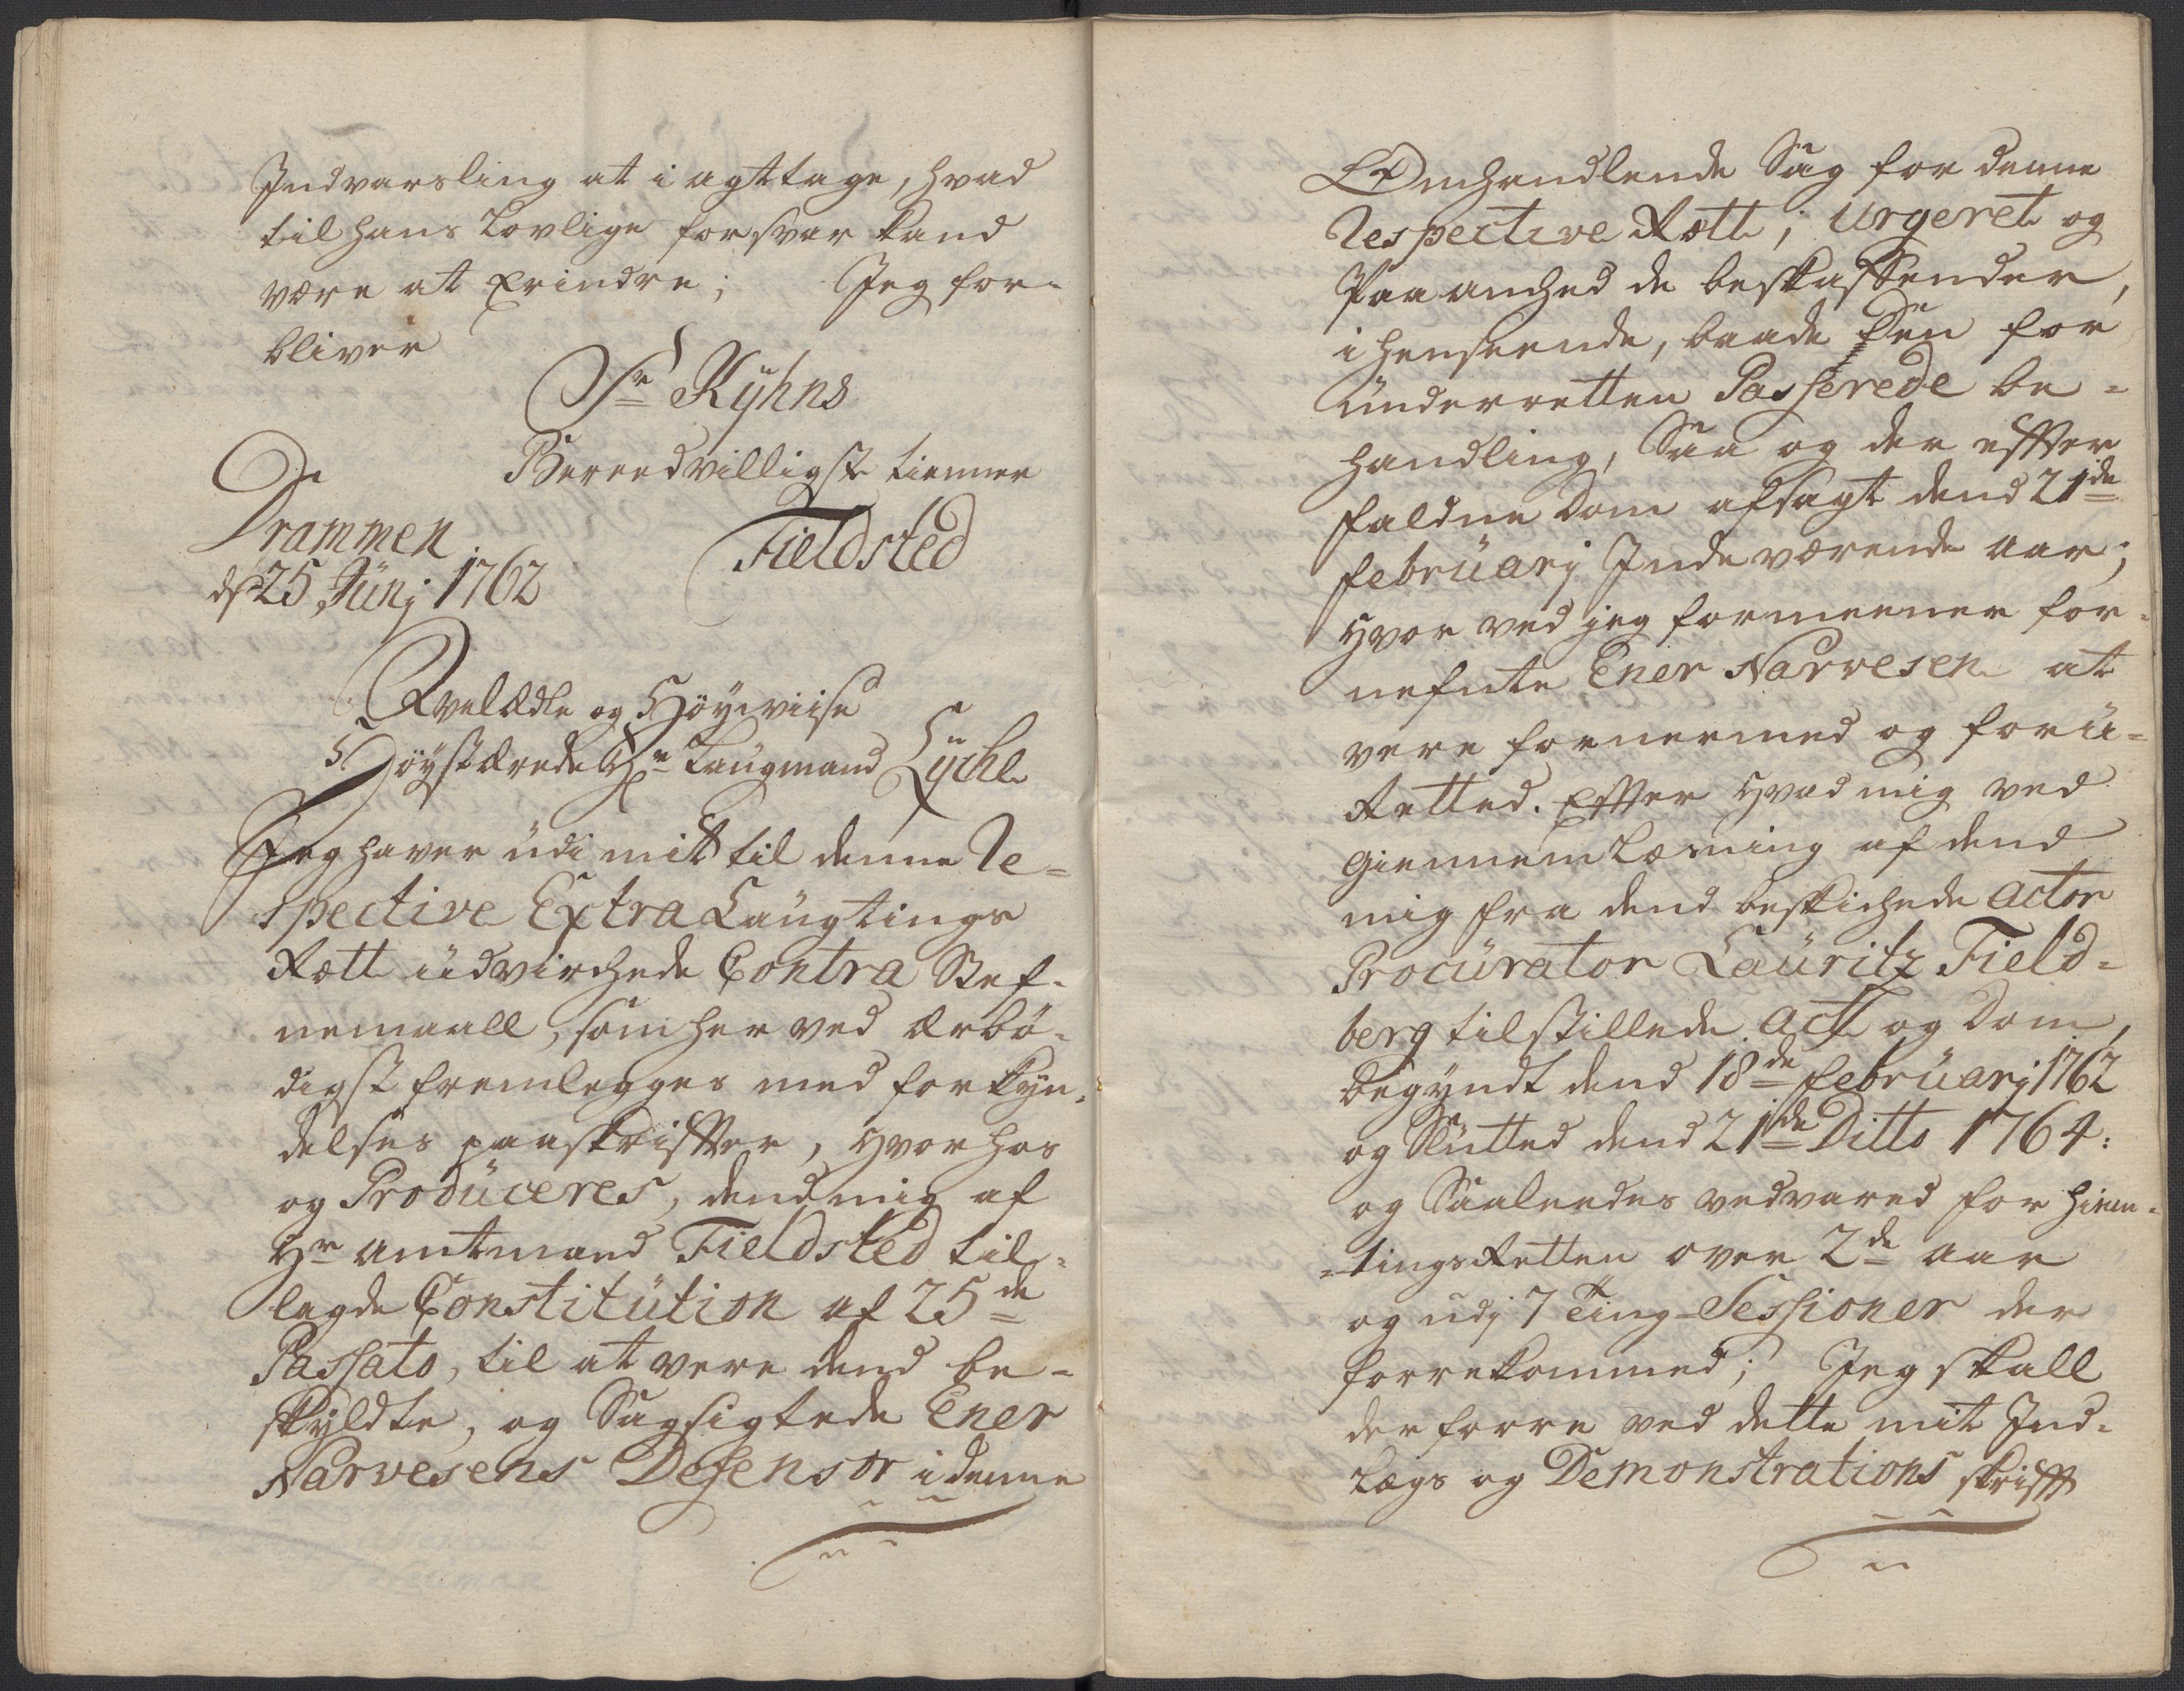 Indvarsling at i agttage, hvad
til hans Lovlige forsvar kand
være at Erindre; Jeg for-
bliver
Sr Kyhns
Bereedvilligste tienner
Drammen
ds 25 Junj 1762
Fieldsted
Velædle og Høyviise
Høystærede Hr Laugmand Lyche
Jeg haver udi mit til denne Re=
spective Extra Laugtings
Rætt udvirchede Contra Stef-
nemaall, som her ved ærbø-
digst fremlegges med forkyn-
delses paaskriffter, hvorhos
og Produceres, dend mig af
Hr Amtmand Fieldsted til-
lagde Constitution af 25de
Passato, til at være dend be-
skyldte, og Sagsigtede Ener
Narvesens Defensor i denne
Omhandlende Sag for denne
Respective Rætt; Urgeret og
Paa anched de beskaffender,
i henseende, baade Den for
Underretten Passerede be=
handling, Saa og der effter
faldne Dom afsagt dend 21de
februarj Inde værende Aar;
Hvor ved jeg formeener for-
nefnte Ener Narvesen at
være fornermed og foru=
Retted. Effter hvad mig ved
giennem Læsning af dend
mig fra dend beskichede Actor
Procurator Lauritz Field=
berg tilstillede Act og Dom,
begyndt dend 18de februarj 1762
og Slutted dend 21de Ditto 1764:
og Saaleedes vedvared for hiem-
=tings Retten over 2de Aar
og udj 7 Ting-Sessioner der
forrekommed; Jeg skall
derforre ved dette mit Ind-
Lægs og Demonstrations skrifft